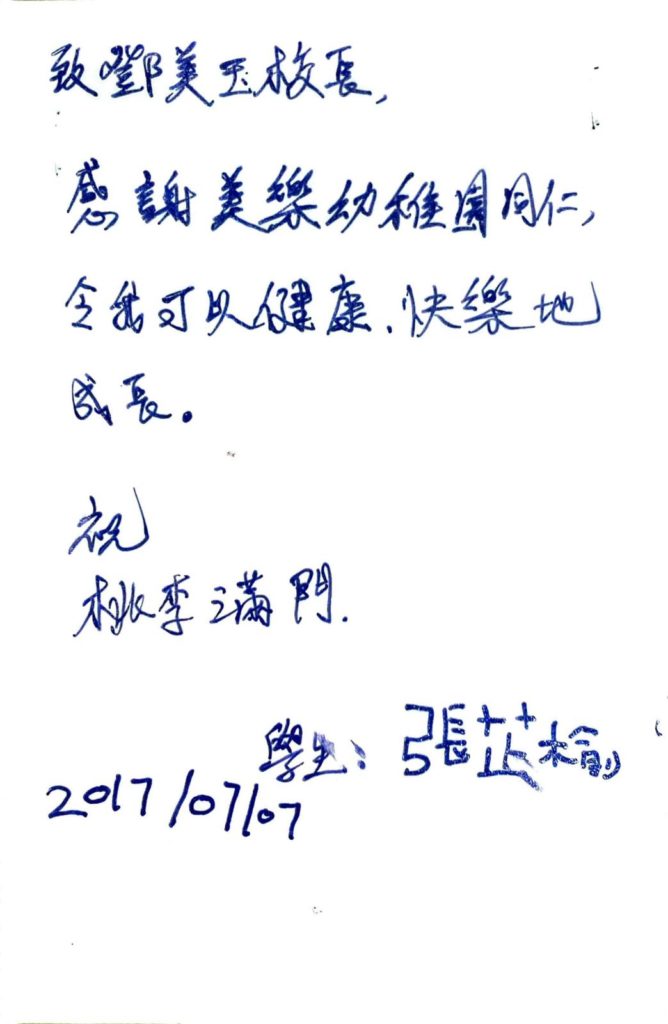 致鄧美玉校長,
感謝美樂幼稚園同仁,
令我可以健康、快樂地
成長。
祝
桃李滿門.
學生：張芷榆
2017/07/07